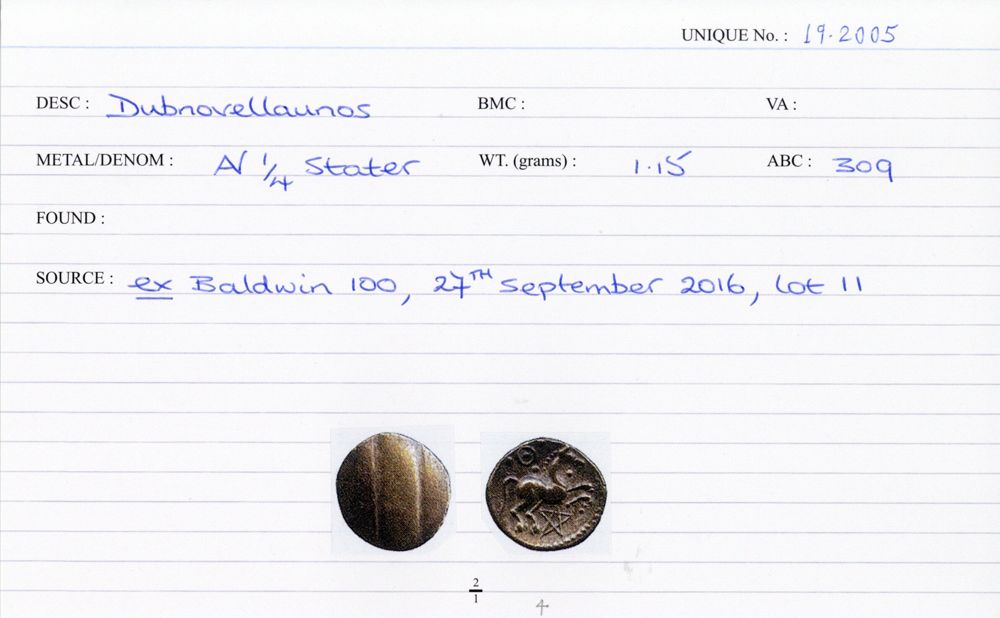 UNIQUE No. : 19.2005
DESC : Dubnovellaunos BMC : VA :
METAL/DENOM : AV 1/4 Stater WT. (grams) : 1.15 ABC : 309
FOUND :
SOURCE : ex Baldwin 100, 27TH September 2016, Lot 11
2/1
4